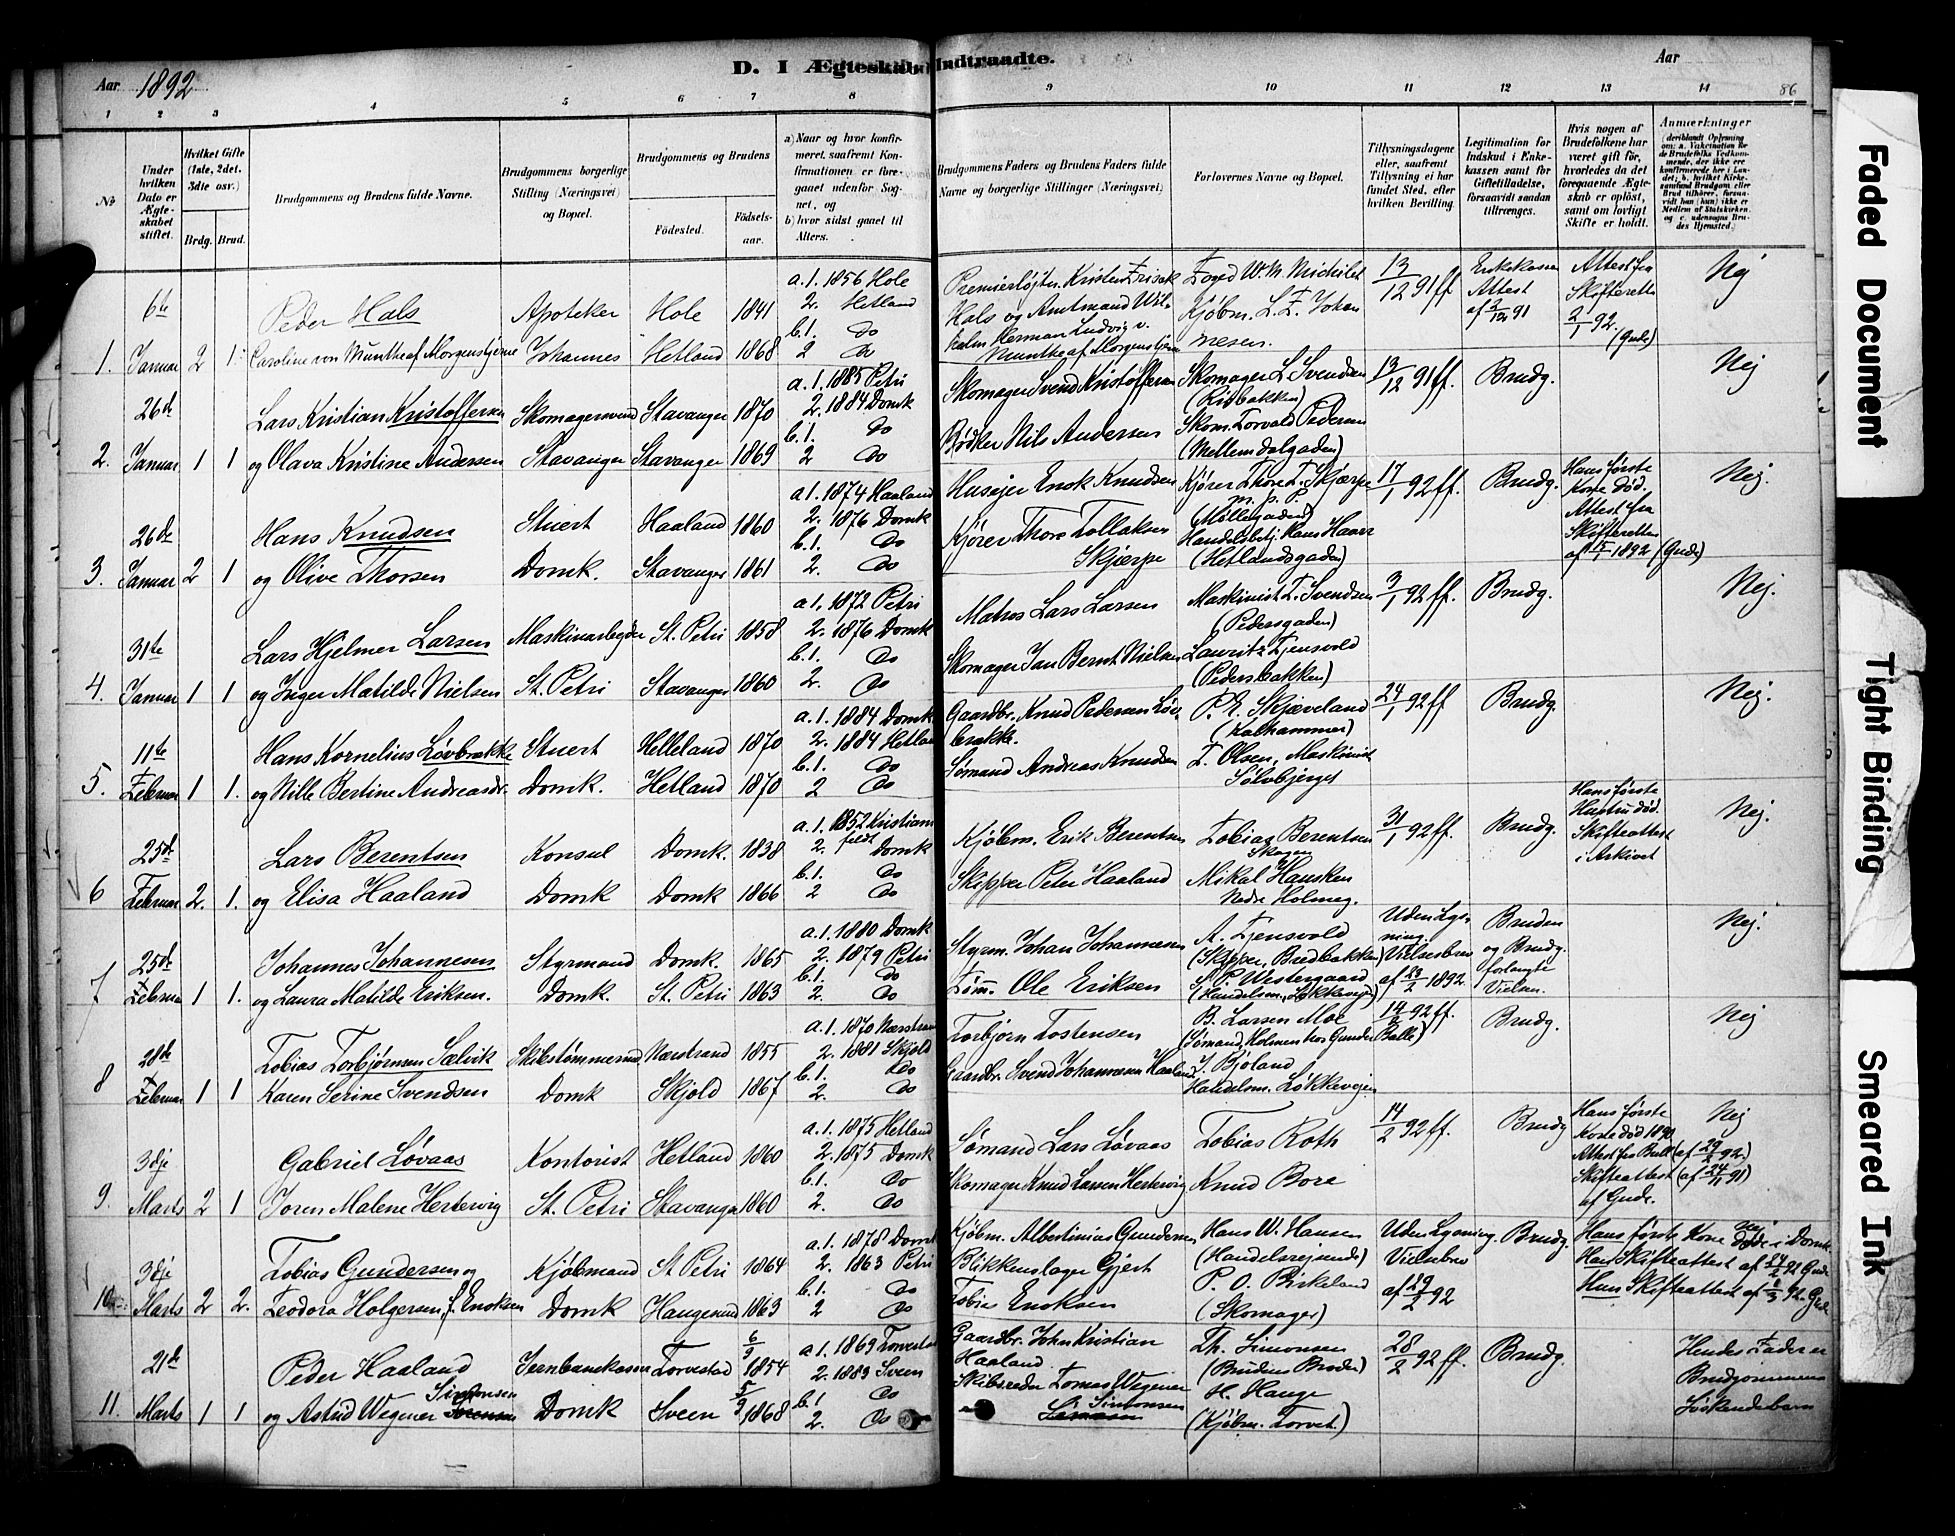 D. I Ægteskab Indtraadte.
Aar 1892
Aar
86
1 2 3 4 5 6 7 8 9 10 11 12 13 14
No
Under hvilken Dato er Ægteskabet stiftet.
Hvilket Gifte (1ste, 2det, 3die osv.)
Brdg. Brud.
Brudgommens og Brudens fulde Navne.
Brudgommens borgerlige Stilling (Næringsvei) og Bopæl.
Brudgommens og Brudens
Fødested.
Fødselsaar.
a) Naar og hvor konfirmeret, saafremt Konfirmationen er foregaaet udenfor Sognet, og
b) hvor sidst gaaet til Alters.
Brudgommens Faders og Brudens Faders fulde Navne og borgerlige Stillinger (Næringsvei)
Forlovernes Navne og Bopæl.
Tillysningsdagene eller, saafremt Tillysning ei har fundet Sted, efter hvilken Bevilling.
Legitimation for Indskud i Enkekassen samt for Giftetilladelse, forsaavidt saadan tiltrænges.
Hvis nogen af Brudefolkene har været gift før, hvorledes da det foregaaende Ægteskab er opløst, samt om lovligt Skifte er holdt.
Anmærkninger
1. 6te Januar 2 1
Peder Hals
Caroline von Munthe af Morgenstjerne
Apoteker
Johannes
Hole 1841
Hetland 1868
a. 1. 1856 Hole
2. Hetland
b. 1. Do
2 Do
Premierløjtn. Kristen Frisak
Hals og Amtmand Wil-
helm Herman Ludvig v.
Munthe af Morgenstjerne
Foged W. M. Michelet
Kjøbm. L. F. Johan
nesen.
13/12 91 ff
Enkekassen
Attest
af 3/12 91
Attest fra
Skifteretten
2/1 92.
(Gude)
Nej
2. 26de Januar 1 1
Lars Kristian Kristoffersen
og Olava Kristine Andersen
Skomagersvend
Stavanger
Stavanger 1870
Stavanger 1869
a. 1. 1885 Petri
2. 1884 Domk
b. 1. Do
2 Do
Skomager Svend Kristoffersen
Bødker Nils Andersen
Skomager L. Svendsen
(Risbakken)
Skom. Torvald Pedersen
(Mellemdalgaden)
13/12 91 ff.
Brudg.
Nej
3. 26de Januar 2 1
Hans Knudsen
og Olive Thorsen
Stuert
Domk.
Haaland 1860
Stavanger 1861
a 1. 1874 Haaland
2. 1876 Domk
b. 1. Do
2. Do
Husejer Enok Knudsen
Kjører Thore Tollaksen
Skjærpe
Kjører Thore T. Skjærpe
m. p. P.
(Møllegaden)
Handelsbetj. Hans Haarr
(Hetlandsgaden)
17/1 92 ff.
Brudg.
Hans første
Kone død.
Attest fra
Skifteretten
af 15/1 1892 (Gude)
Nej.
4. 31te Januar 1 1
Lars Hjelmer Larsen
og Inger Matilde Nielsen
Maskinarbejder
St. Petri
St. Petri 1858
Stavanger 1860
a 1. 1872 Petri
2. 1876 Domk
b. 1. Do
2. Do
Matros Lars Larsen
Skomager Jan Bernt Nielsen
Maskinist T. Svendsen
(Pedersgaden)
Lauritz Tjensvold
(Pedersbakken)
3/1 92 ff.
Brudg.
Nej.
5. 11te Februar 1 1.
Hans Kornelius Løvbrække
og Nille Bertine Andreasdr.
Stuert
Domk.
Helleland 1870
Hetland 1870
a. 1. 1884 Domk
2. 1884 Hetland
b. 1. Do
2 Do
Gaardbr. Knud Pedersen Løv-
brække.
Sømand Andreas Knudsen
P. E. Skjæveland
(Kalhammer)
T. Olsen, Maskinist
Sølvbjerget
24/1 92 ff
Brudg.
Nej.
6 25de Februar 2. 1.
Lars Berentsen
og Elisa Haaland
Konsul
Domk
Domk. 1838
Domk 1866
a. 1. 1852 Kristians
feldt
2. Domk
b. 1. Do
2 Do
Kjøbm. Erik Berentsen
Skipper Peter Haaland
Tobias Berentsen
Skagen
Mikal Hansken
Nedre Holmeg.
31/1 92 ff.
Brudg.
Hans første
Hustru død.
Skifteattest
i Arkivet
Nej.
7 25de Februar 1 1.
Johannes Johannesen
og Laura Matilde Eriksen.
Styrmand
Domk.
Domk. 1865
St. Petri 1863
a. 1. 1880 Domk
2. 1879 Petri
b. 1. Do
2. Do
Styrm. Johan Johannesen
Tøm. Ole Eriksen
A. Tjensvold
(Skipper, Bredbakken)
S. P. Westergaard
(Handelsm., Løkkevejen)
Uden Lys-
ning.
Vielsesbrev
af 23/2 1892.
Bruden
og Brudg.
forlangte
Vielsen.
Nej.
8 28de Februar 1 1
Tobias Torbjørnsen Sælvik
Karen Serine Svendsen
Skibstømmermd
Domk
Nærstrand 1855
Skjold 1867
a. 1. 1870 Nærstrand
2. 1881 Skjold
b. 1. Do
2. Do
Torbjørn Tostensen
Gaardbr. Svend Johannesen Haaland
B. Larsen Moe
(Sømand, Holmen hos Gunder Balle)
J. Bjoland
Handelsm. Løkkevejen
14/2 92 ff.
Brudg.
Nej
9. 3dje Marts 2 1
Gabriel Løvaas
Joren Malene Hertervig
Kontorist
St. Petri
Hetland 1860
Stavanger 1860
a. 1. 1875 Hetland
2. 1875 Domk
b. 1. Do
2. Do
Sømand Lars Løvaas
Skomager Knud Larsen Hertervig
Tobias Roth
Knud Bore
14/2 92 ff.
Brudg
Hans første
Kone død 1890
Attest fra Bull (af 29/2 92)
Skifteattest (af 24/11 91)
af Gude.
Nej
10 3dje Marts 2 2.
Tobias Gundersen og
Teodora Holgersen f. Enoksen
Kjøbmand
Domk
St Petri 1864
Haugesund 1863
a. 1. 1878 Domk
2. 1863 Petri
b. 1. Do
2 Do
Kjøbm. Albertinius Gundersen
Blikkenslager Gjert
Tobias Enoksen
Hans W. Hansen
(Handelsrejsende)
P. O. Birkeland
(Skomager)
Uden Lysning.
Vielsebrev
af 29/2 92
Brudg.
Hans første Kone døde i Domk.
Hans Skifteattest af 24/2 92 Gude
Huns Skifteattest af 1/3 92. Gude
Nej
11. 21de Marts 1 1
Peder Haaland
og Astrid Wegener Simonsen
Jernbanekasser
Domk
Torvestad 6/9 1854
Sveen 5/9 1868
a 1. 1869 Torvestad
2. 1883 Sveen
b. 1 Do
2. Do
Gaardbr. John Kristian
Haaland
Skibsreder Tomas Wegener
Simonsen
Th. Simonsen
(Brudens Broder)
H. Hauge
(Kjøbm. Torvet.)
28/2 92 ff.
Brudg.
Hendes Fader er
Brudgommens
Søskendebarn
Faded Document
Tight Binding
Smeared Ink